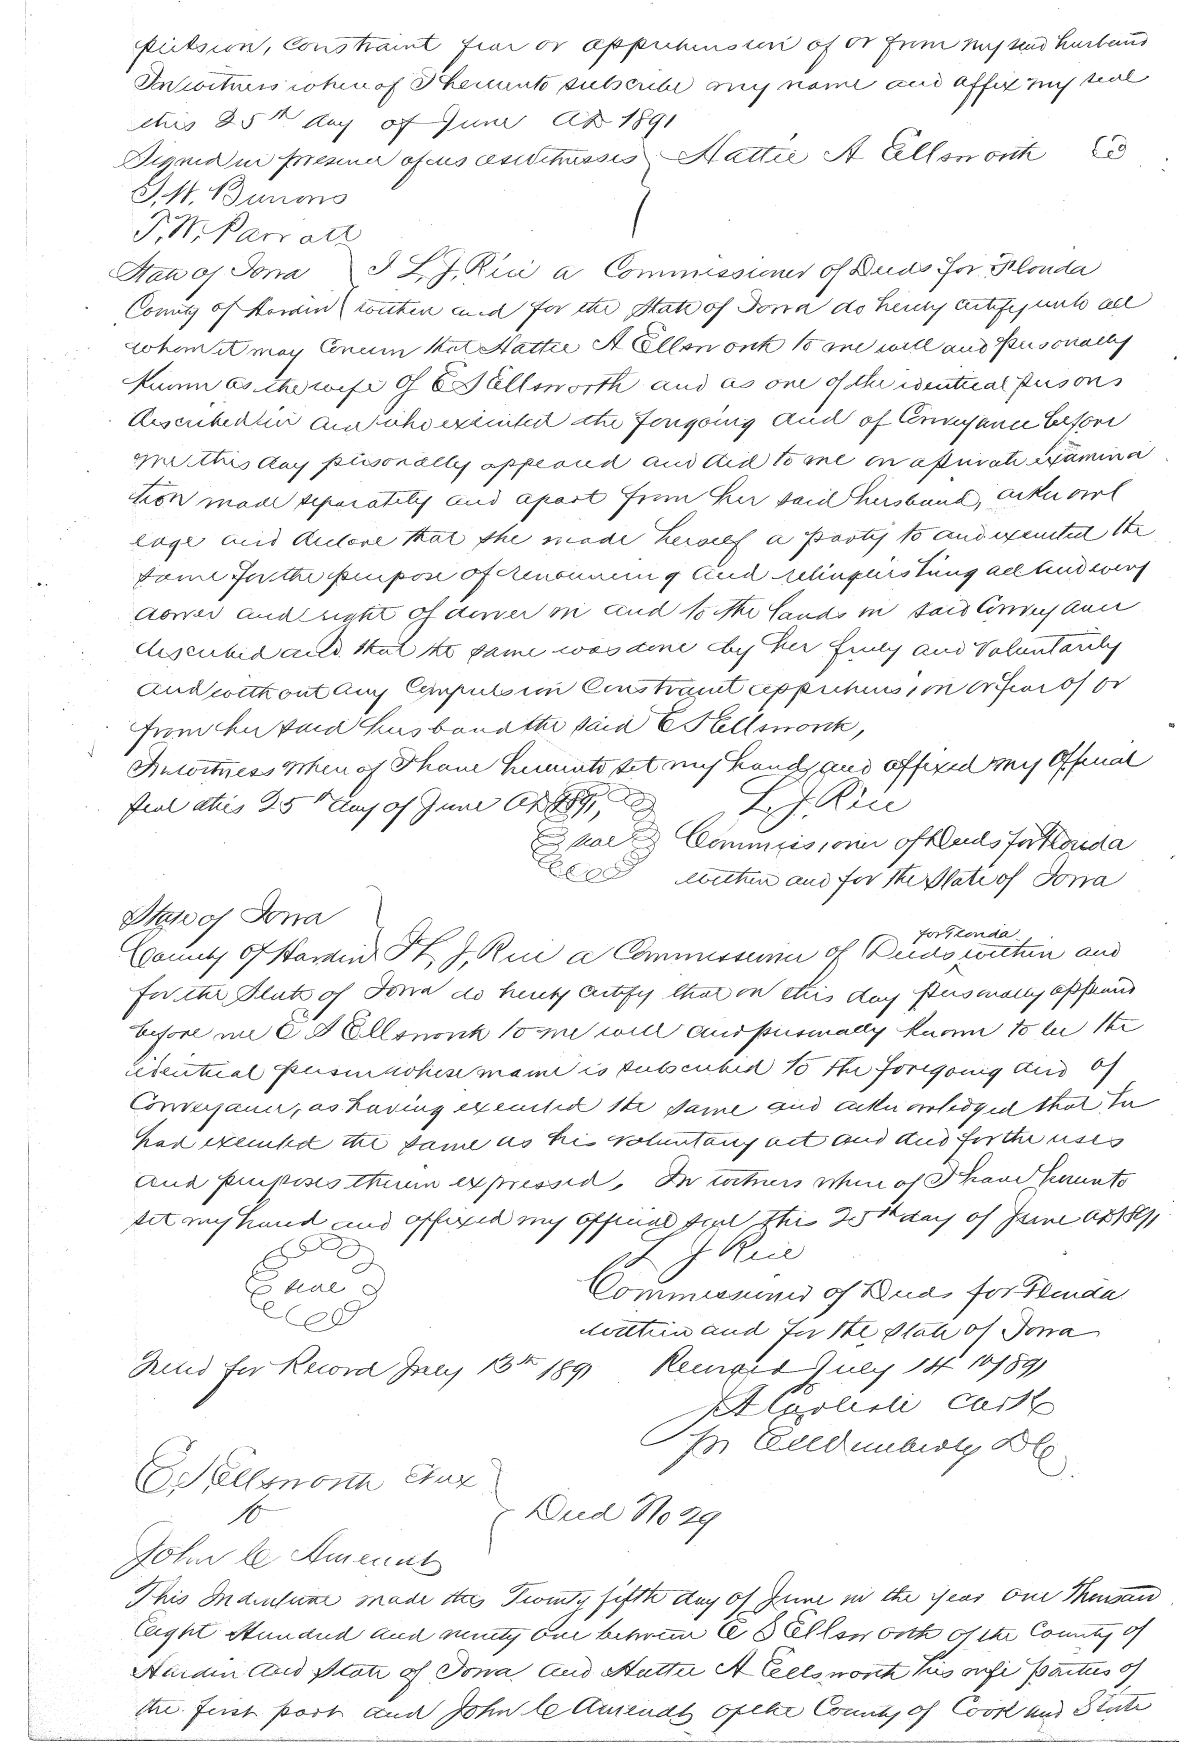 pulsion, constraint fear or apprehension of or from my said husband
In witness whereof I hereunto subscribe my name and affix my seal
this 25th day of June AD 1891
Signed in presence of us as Witnesses } Hattie A Ellsworth
J. W. Burrows
P. W. Parratt
State of Iowa } I L. J. Rice a Commissioner of Deeds for Florida
County of Hardin } within and for the State of Iowa do hereby certify unto all
whom it may concern that Hattie A Ellsworth to me well and personally
known as the wife of E S Ellsworth and as one of the identical persons
described in and who executed the foregoing deed of Conveyance before
me this day personally appeared and did to me on a private examina
tion made separately and apart from her said husband, acknowl
edge and declare that she made herself a party to and executed the
same for the purpose of renouncing and relinquishing all and every
dower and right of dower in and to the lands in said Conveyance
described and that the same was done by her freely and voluntarily
and without any Compulsion Constraint apprehension or fear of or
from her said husband the said E S Ellsworth,
In witness whereof I have hereunto set my hand and affixed my official
seal this 25th day of June AD 1891, L. J. Rice
seal Commissioner of Deeds for Florida
within and for the State of Iowa
State of Iowa }
County of Hardin } I L. J. Rice a Commissioner of Deeds for Florida within and
for the State of Iowa do hereby certify that on this day personally appeared
before me E S Ellsworth to me well and personally known to be the
identical person whose name is subscribed to the foregoing deed of
Conveyance, as having executed the same and acknowledged that he
had executed the same as his voluntary act and deed for the uses
and purposes therein expressed. In witness where of I have hereunto
set my hand and affixed my official seal this 25th day of June AD 1891
L J Rice
seal Commissioner of Deeds for Florida
within and for the State of Iowa
Filed for Record July 13th 1891 Record July 14 1891
A Carlisle Clerk
E. S. Ellsworth Etux }
to } Deed No 29
John C Amendt
This Indenture made this Twenty fifth day of June in the year one Thousan
Eight Hundred and ninety one between E S Ellsworth of the County of
Hardin and State of Iowa and Hattie A Ellsworth his wife parties of
the first part and John C Amendt of the County of Cook and State